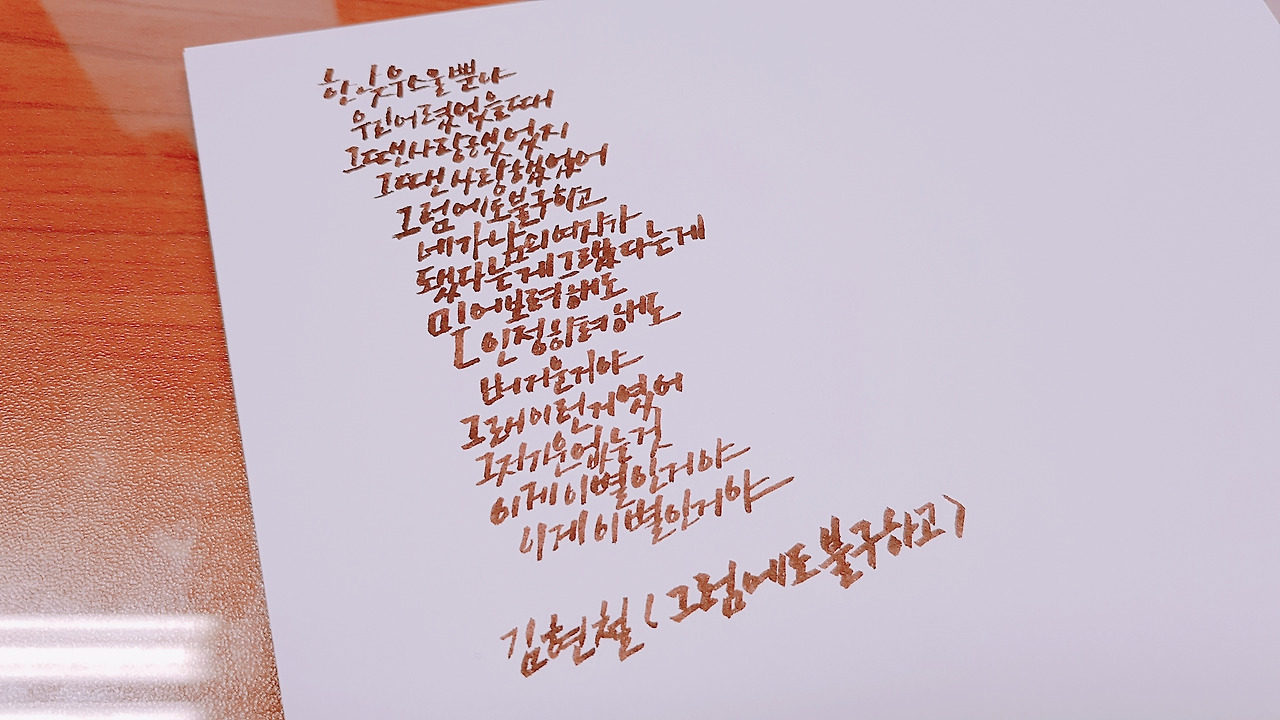 한낮우스울뿐야
우린어렸었을때
그땐사랑했었지
그땐사랑했었어
그럼에도불구하고
네가남의여자가
됐다는게그랬다는게
믿어보려해도
인정하려해도
버거운거야
그래이런거였어
그저기운없는걸
이제이별인거야
이제이별인거야
김현철(그럼에도불구하고)